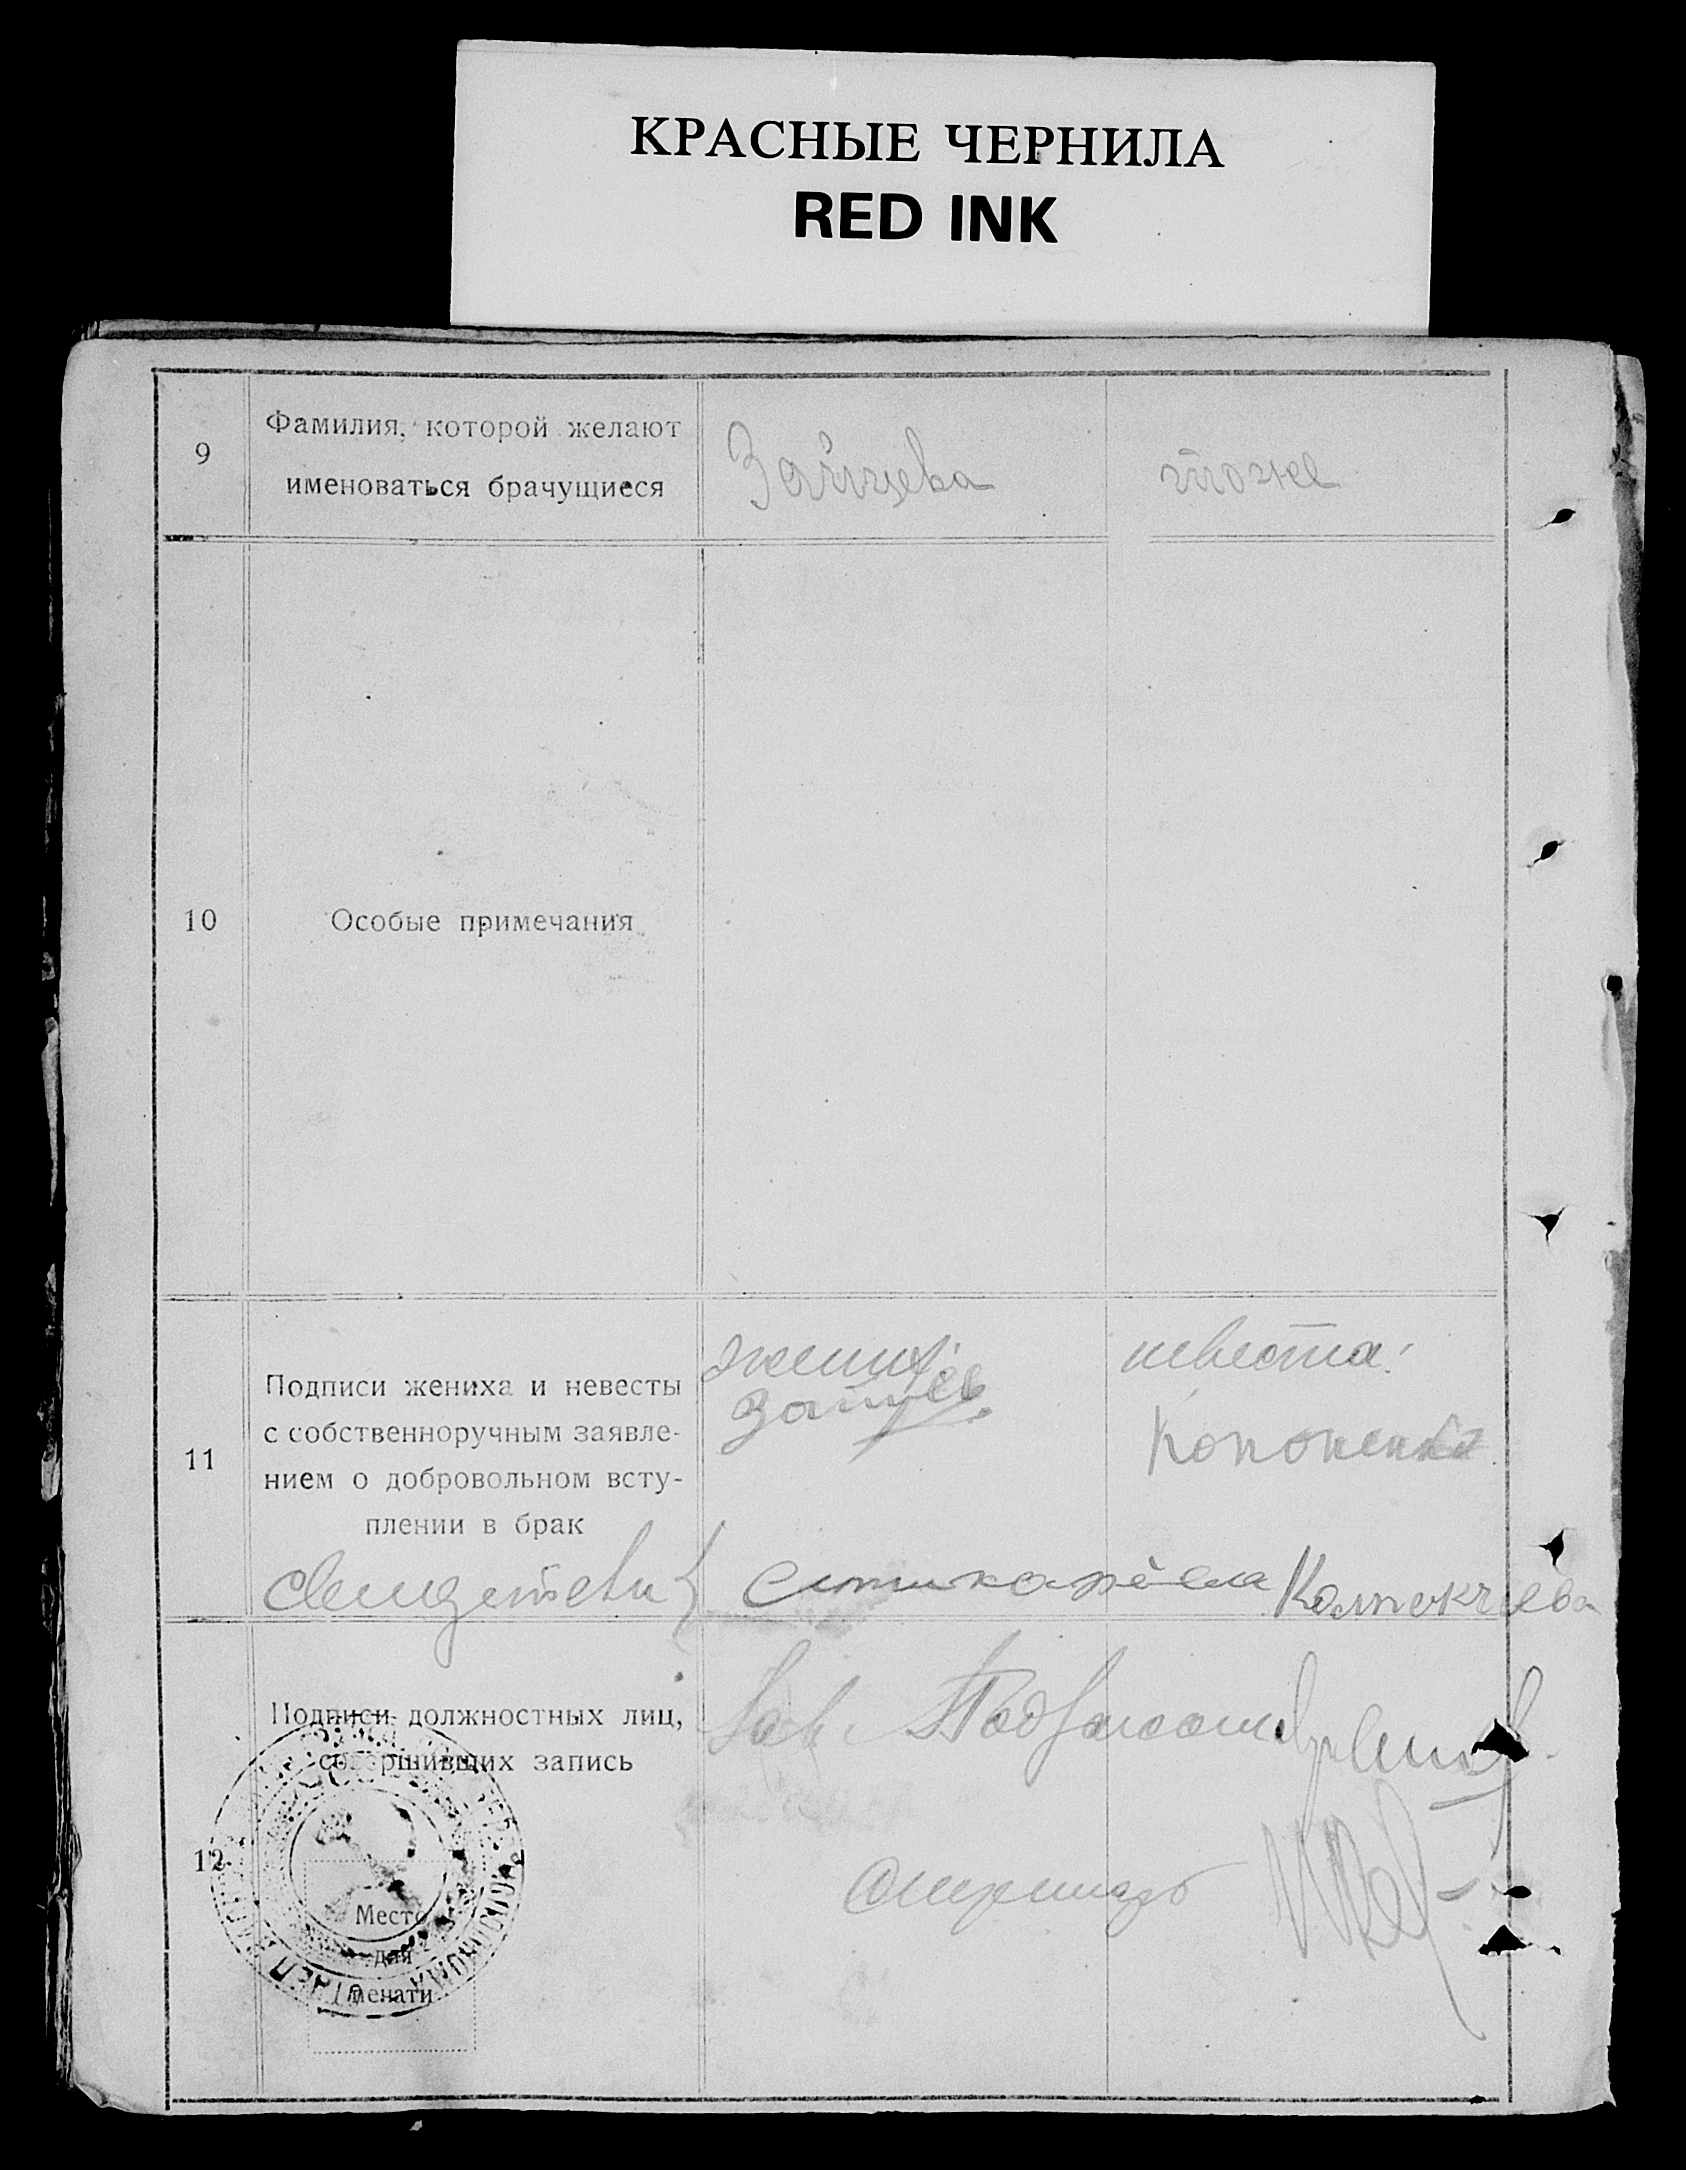 КРАСНЫЕ ЧЕРНИЛА
RED INK
9
Фамилия, которой желают
именоваться брачущиеся
Зайцева
тоже
10
Особые примечания
11
Подписи жениха и невесты
с собственноручным заявле-
нием о добровольном всту-
плении в брак
жених:
Зайцев
невеста:
Кононенко
свидетели
12
Подписи должностных лиц,
совершивших запись
Зав. Подзагсом
Место
для
печати